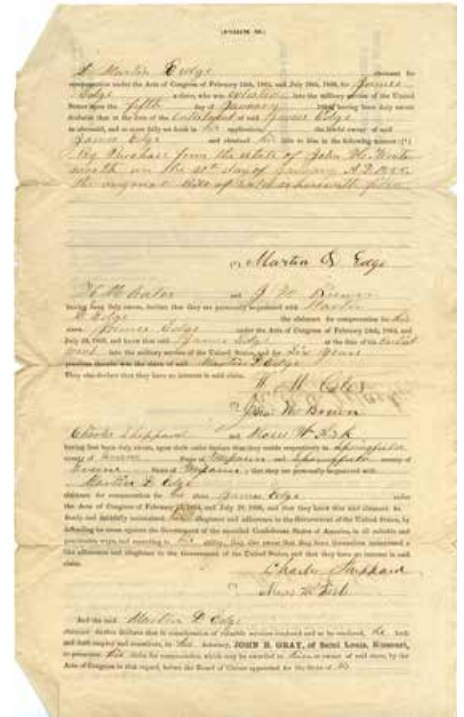 I Martin D Edge claimant for
compensation under the Acts of Congress of February 24th, 1864, and July 28th, 1866, for James
Edge a slave, who was enlisted into the military service of the United
States upon the fifth day of January 186 having been duly sworn
declares that at the date of the enlistment of said James Edge
as aforesaid, and as more fully set forth in his application, the lawful owner of said
James Edge and obtained his title to him in the following manner: (*)
By Purchase from the estate of John
on the day of January A.D.
the original Bill of Sale is herewith filed
Martin D Edge
and J W Brown
having been duly sworn, declare that they are personally acquainted with Martin
D Edge the claimant for compensation for his
slave, James Edge under the Acts of Congress of February 24th, 1864, and
July 28, 1866, and know that said James Edge at the time of his enlist
ment into the military service of the United States, and for Six years
previous thereto was the slave of said Martin D Edge
They also declare that they have no interest in said claim.
W M
W Brown
Charles Sheppard and Kirk
having been duly sworn, upon their oaths declare that they reside respectively in Springfield
county of Greene State of Missouri and Springfield county of
Greene State of Missouri; that they are personally acquainted with
Martin D Edge
claimant for compensation for his slave James Edge under
the Acts of Congress of February 24, 1864, and July 28, 1866, and that they know that said claimant has
firmly and faithfully maintained his allegiance and adherence to the Government of the United States, by
defending its cause against the Government of the so-called Confederate States of America, in all suitable and
practicable ways, and that they have themselves maintained a
like adherence and allegiance to the Government of the United States, and that they have no interest in said
claim.
Charles Sheppard
Kirk
And the said Martin D Edge
claimant further declares that in consideration of valuable services rendered and to be rendered, he hath
and doth employ and constitute, as his Attorney, JOHN B. GRAY, of Saint Louis, Missouri,
to prosecute his claim for compensation which may be awarded to him as owner of said slave, by the
Acts of Congress in that regard, before the Board of Claims appointed for the State of Mo